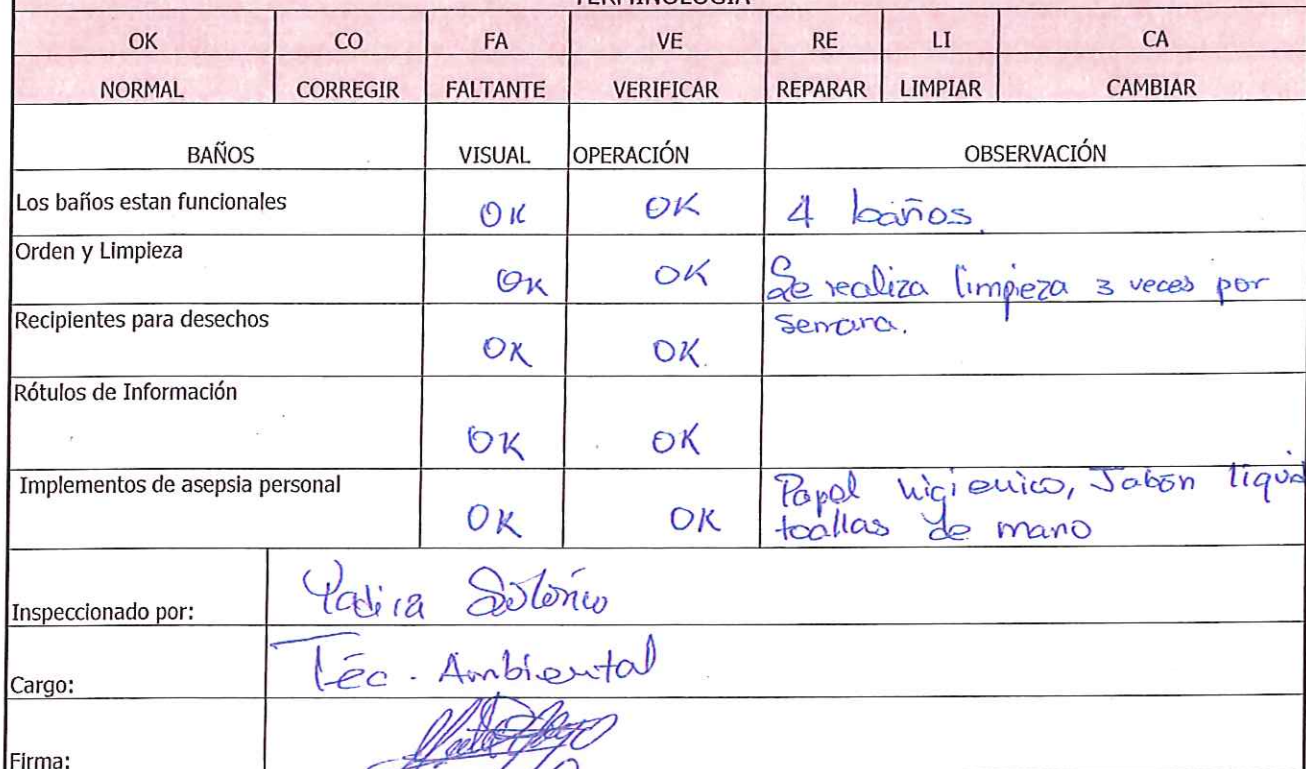 TERMINOLOGIA
OK CO FA VE RE LI CA
NORMAL CORREGIR FALTANTE VERIFICAR REPARAR LIMPIAR CAMBIAR
BAÑOS VISUAL OPERACIÓN OBSERVACIÓN
Los baños estan funcionales OK OK 4 baños.
Orden y Limpieza OK OK Se realiza limpieza 3 veces por
semana.
Recipientes para desechos OK OK.
Rótulos de Información OK OK
Implementos de asepsia personal OK OK Papel higienico, Jabón liquid
toallas de mano
Inspeccionado por: Yadira
Cargo: Téc. Ambiental
Firma: